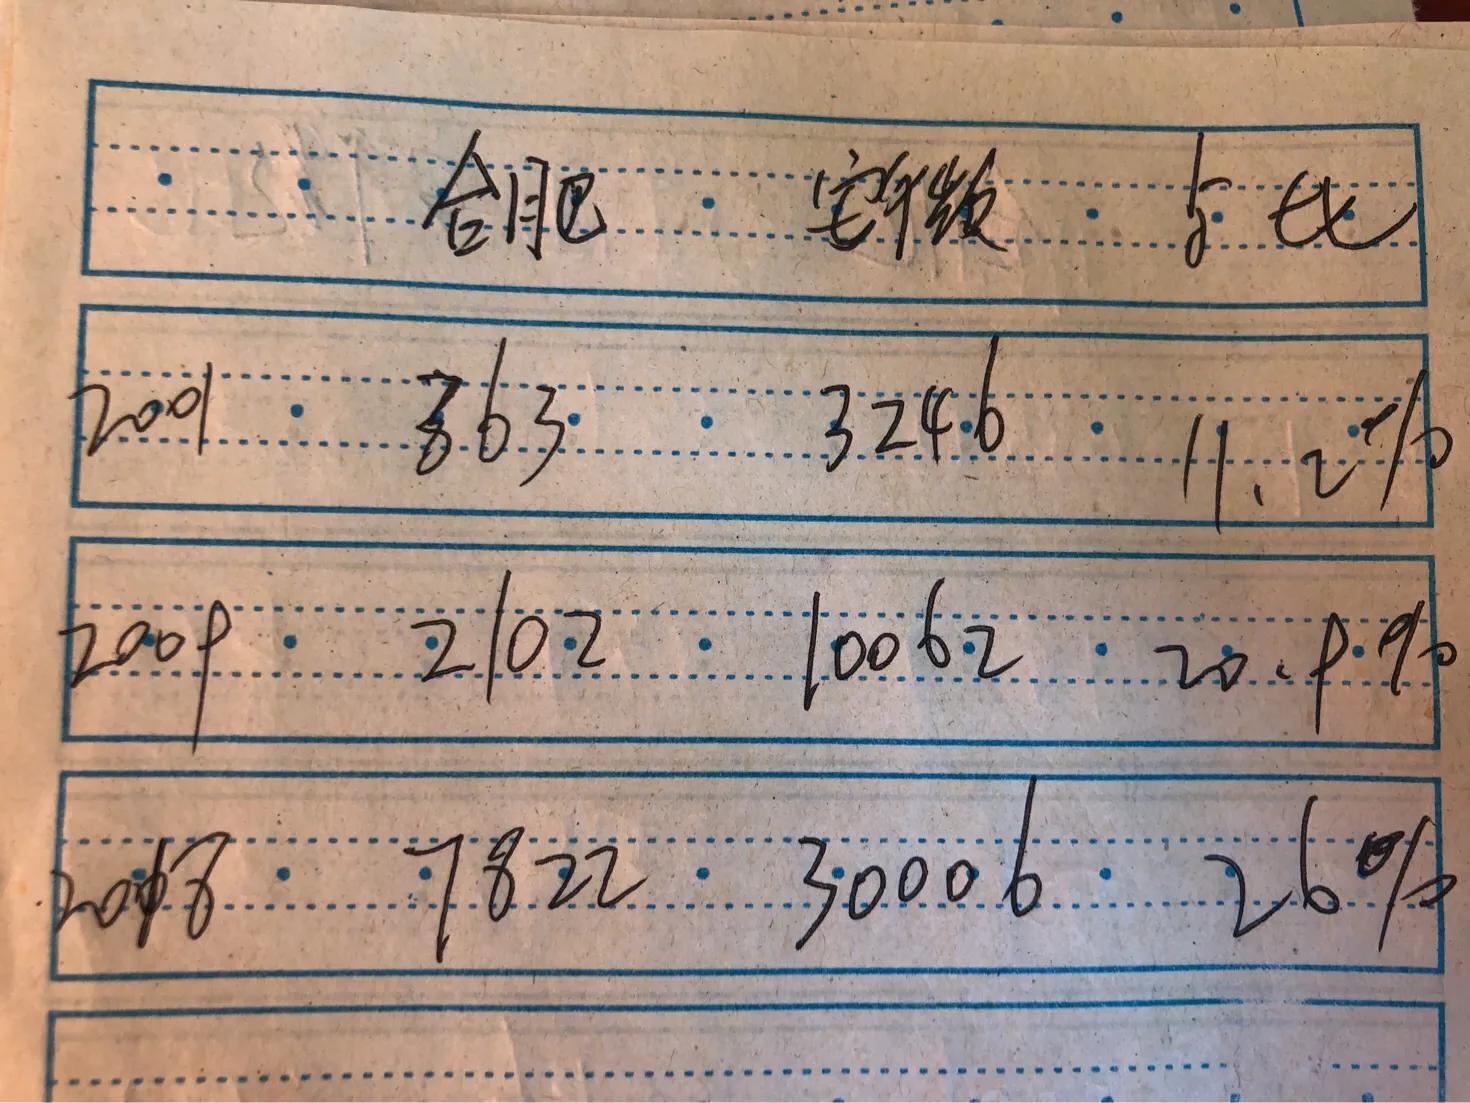 合肥 安徽 占比
2001 363 3246 11.2%
2009 2102 10062 20.9%
2018 7822 30006 26%